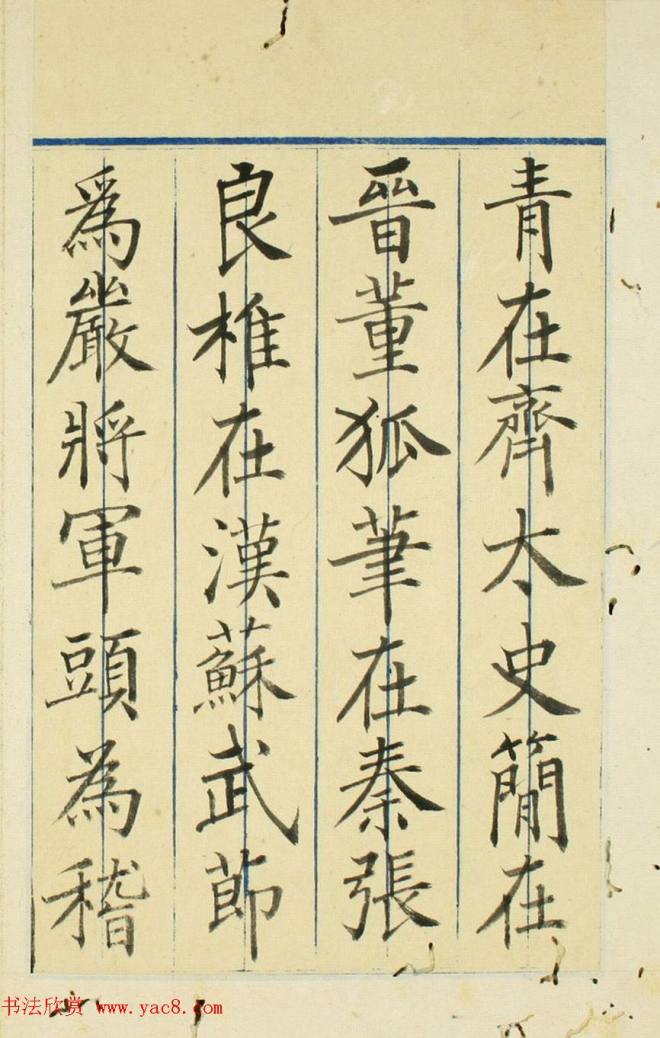 青在齊太史簡在
晉董狐筆在秦張
良椎在漢蘇武節
爲嚴將軍頭為稽
书法欣赏 www.yac8.com